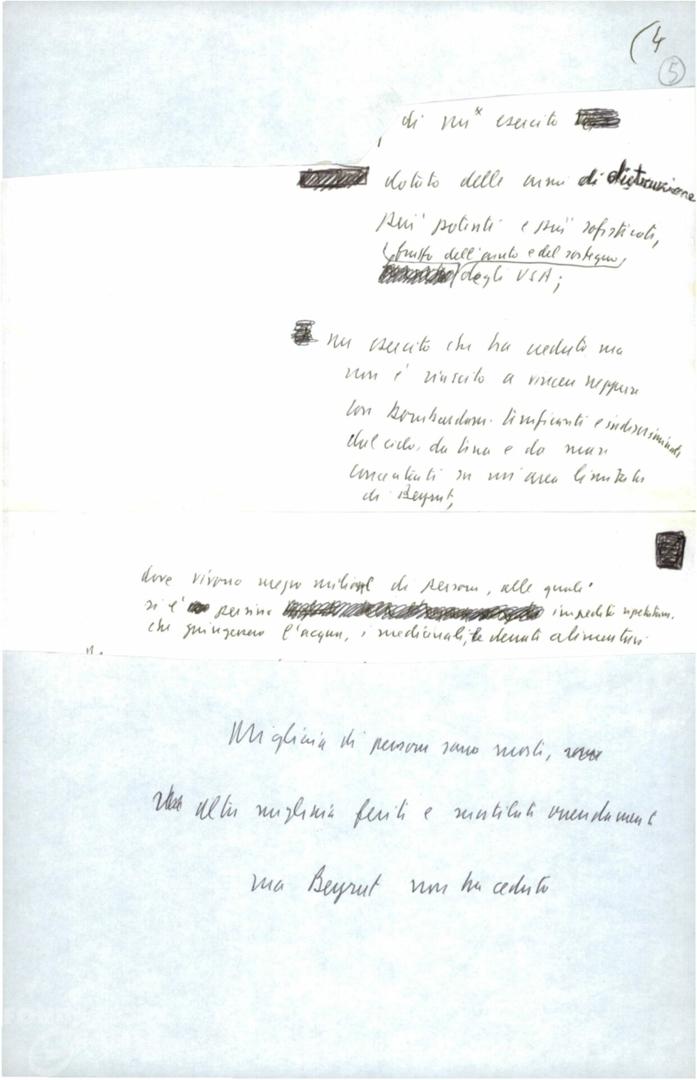 (4
5
di un* esercito
dotato delle armi di distruzione
più potenti e più sofisticati,
frutto dell'aiuto e del sostegno
degli USA;
un esercito che ha ceduto ma
non è riuscito a vincere neppure
con bombardam. terrificanti e indiscriminati
dal cielo, da terra e da mare
concentrati su un'area limitata
di Beyrut,
dove vivono mezzo milione di persone, alle quali
si è persino impedito ripetutam.
che giungessero l'acqua, i medicinali, le derrate alimentari
Migliaia di persone sono morti,
altre migliaia feriti e mutilati orrendament
ma Beyrut non ha ceduto